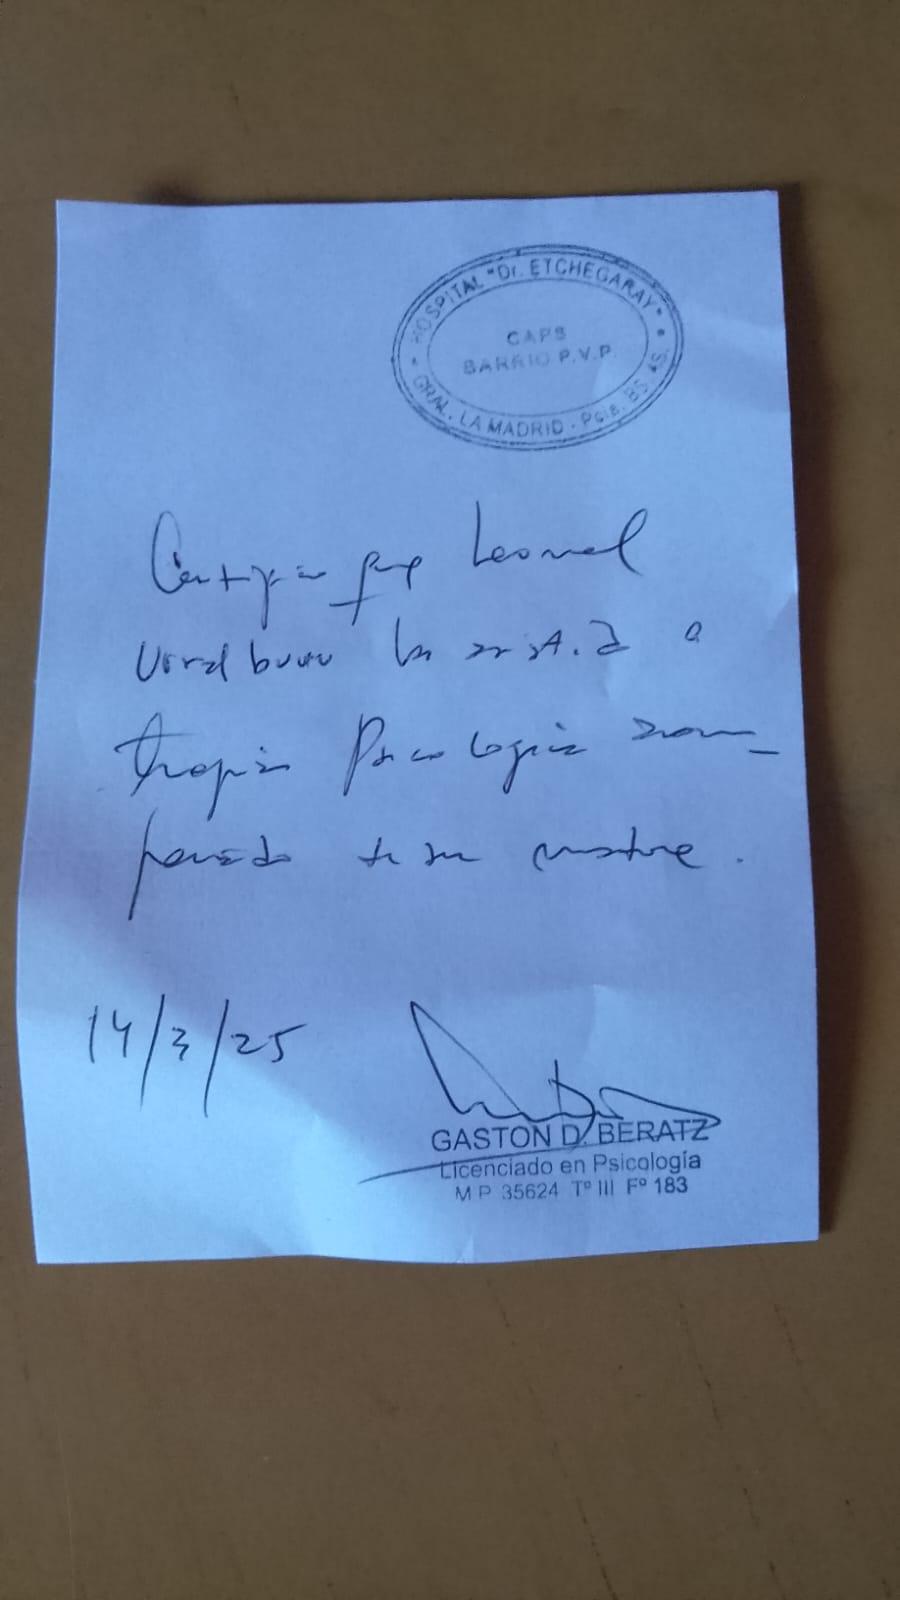 HOSPITAL "Dr. ETCHEGARAY"
CAPS
BARRIO P.V.P.
GRAL. LA MADRID - Pcia. BS. AS.
Certifico que Leonel
ha asistido a
terapia Psicologica acom-
pañado de su madre.
14/3/25
GASTON D. BERATZ
Licenciado en Psicología
M P 35624 Tº III Fº 183